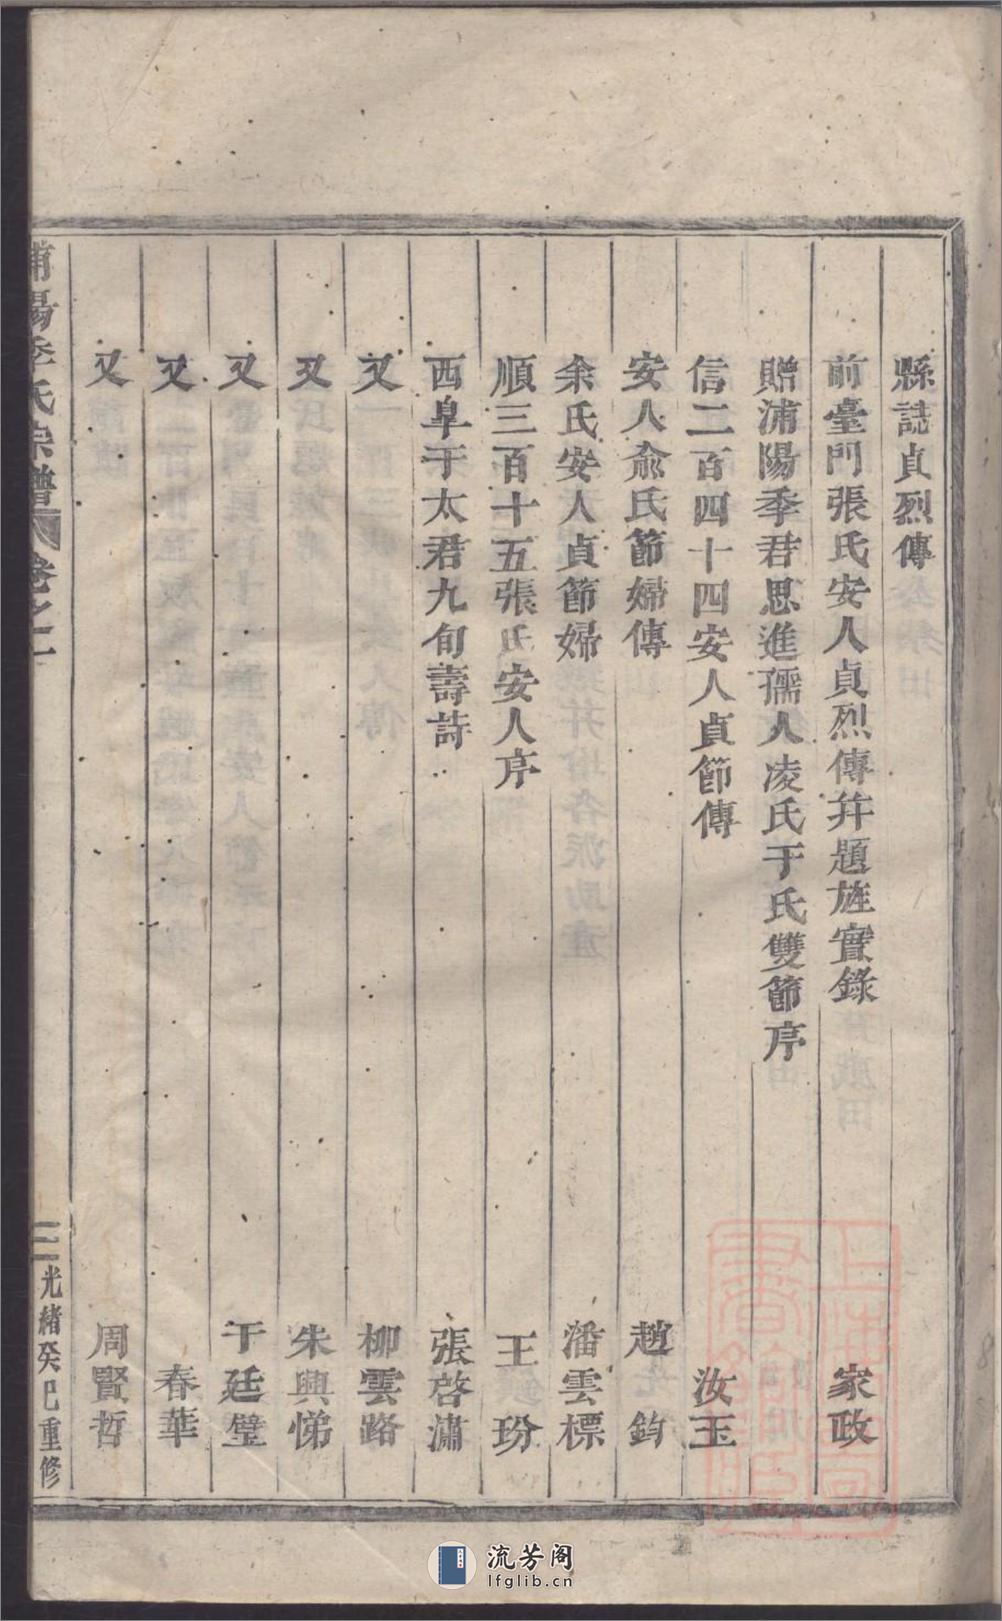 縣誌貞烈傳
前臺門張氏安人貞烈傳幷題旌實錄 家政
贈浦陽季君思進孺人凌氏于氏雙節序
信二百四十四安人貞節傳 汝玉
安人兪氏節婦傳 趙鈞
余氏安人貞節婦 潘雲標
順三百十五張氏安人序 王玢
西皐于太君九旬壽詩 張啓瀟
又 柳雲路
又 朱興悌
又 于廷璧
又 春華
又 周賢哲
浦陽季氏宗譜 卷之一 二 光緖癸巳重修
流芳阁
lfglib.cn